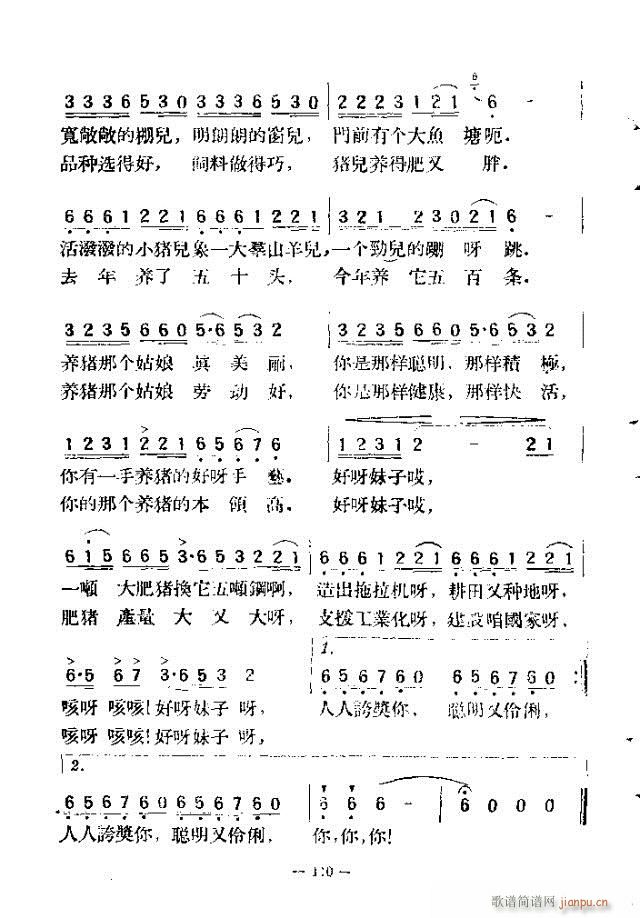 3 3 3 6 5 3 0 3 3 3 6 5 3 0 | 2 2 2 3 1 2 1 6 -
寬敞敞的棚兒，明朗朗的窗兒，門前有个大魚塘呃．
品种选得好，飼料做得巧，猪兒养得肥又胖．
6 6 6 1 2 2 1 6 6 6 1 2 2 1 | 3 2 1 2 3 0 2 1 6 -
活潑潑的小猪兒象一大羣山羊兒，一个勁兒的蹦呀跳．
去年养了五十头，今年养它五百条．
3 2 3 5 6 6 0 5·6 5 3 2 | 3 2 3 5 6 6 0 5·6 5 3 2
养猪那个姑娘眞美丽，你是那样聪明，那样積極，
养猪那个姑娘劳动好，你是那样健康，那样快活，
1 2 3 1 2 2 1 6 5 6 7 6 | 1 2 3 1 2 - 2 1
你有一手养猪的好呀手藝．好呀妹子哎，
你的那个养猪的本領高．好呀妹子哎，
6 1 5 6 6 5 3·6 5 3 2 2 1 | 6 6 6 1 2 2 1 6 6 6 1 2 2 1
一噸大肥猪換它五噸鋼啊，造出拖拉机呀，耕田又种地呀，
肥猪產量大又大呀，支援工業化呀，建設咱國家呀，
1.
6·5 6 7 3·6 5 3 2 | 6 5 6 7 6 0 6 5 6 7 6 0 :
咳呀咳咳！好呀妹子呀，人人誇獎你，聪明又伶俐，
咳呀咳咳！好呀妹子呀，
2.
6 5 6 7 6 0 6 5 6 7 6 0 | 6 6 6 - | 6 0 0 0
人人誇獎你，聪明又伶俐，你，你，你！
-- 110 --
歌谱简谱网
jianpu.cn